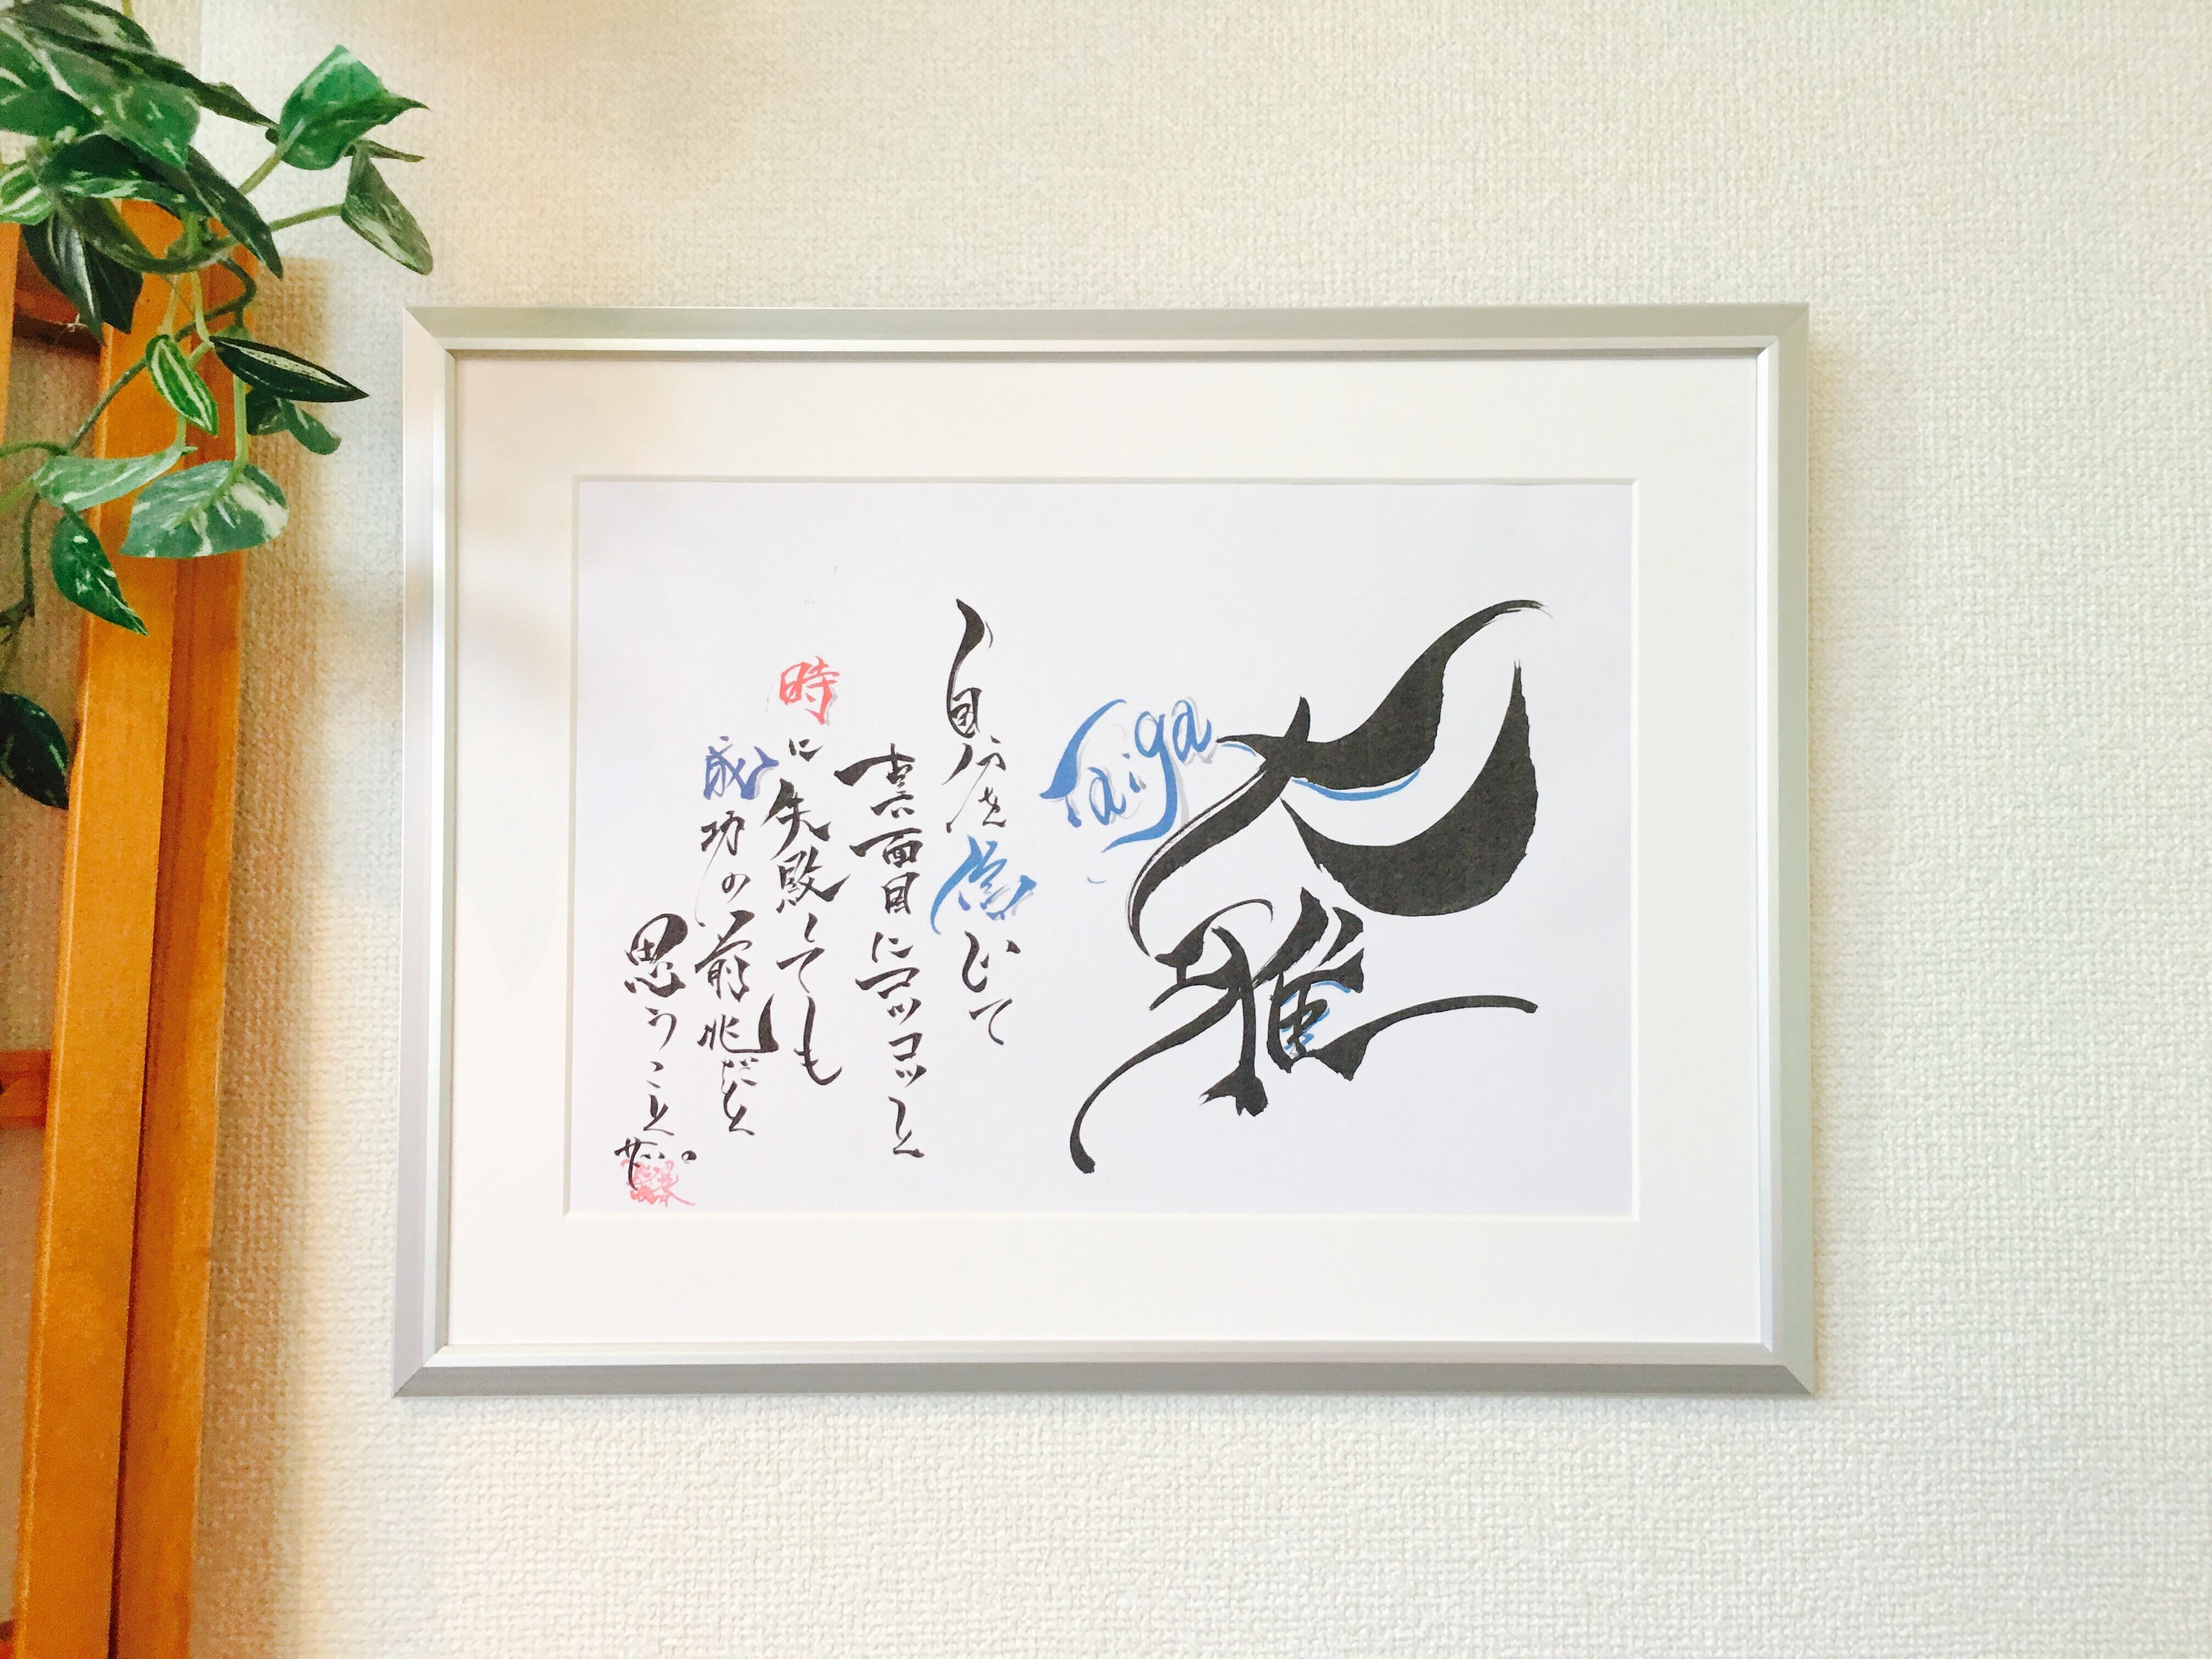 大雅
Taiga
自分を信じて
真面目にコツコツと
時に失敗しても
成功の前兆だと
思うこと